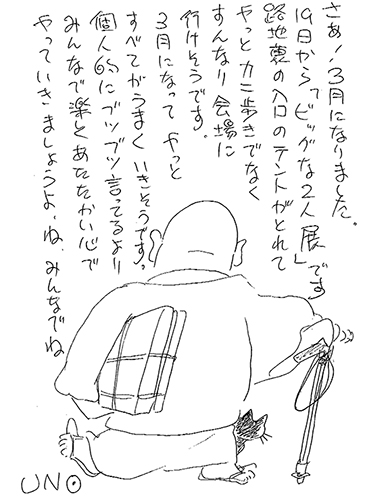 さぁ！3月になりました。
19日から「ビッグな2人展」です
路地裏の入口のテントがとれて
やっとカニ歩きでなく
すんなり会場に
行けそうです。
3月になって やっと
すべてがうまく いきそうです。
個人的にブツブツ言ってるより
みんなで楽しくあたたかい心で
やっていきましょうよ、ね、みんなでね
UNO